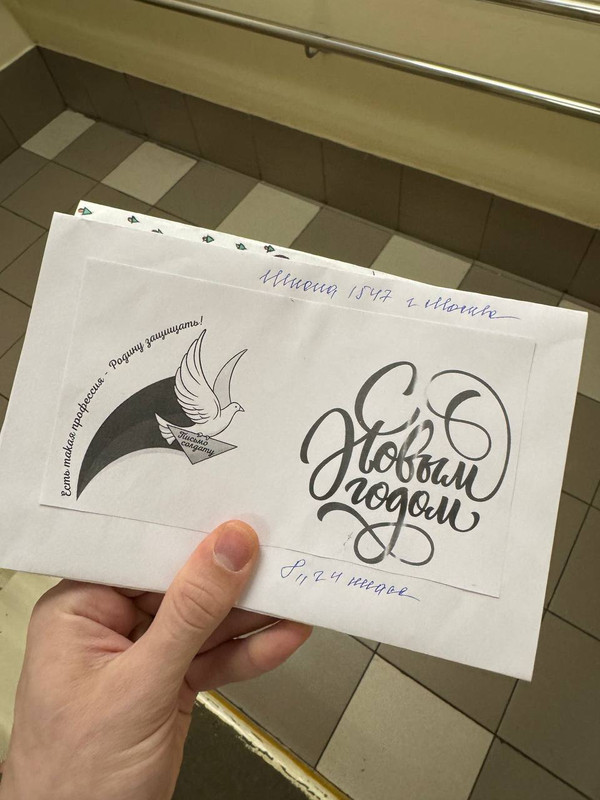 Школа 1547 г Москва
Есть такая профессия - Родину защищать!
Письмо
солдату
С
Новым
годом